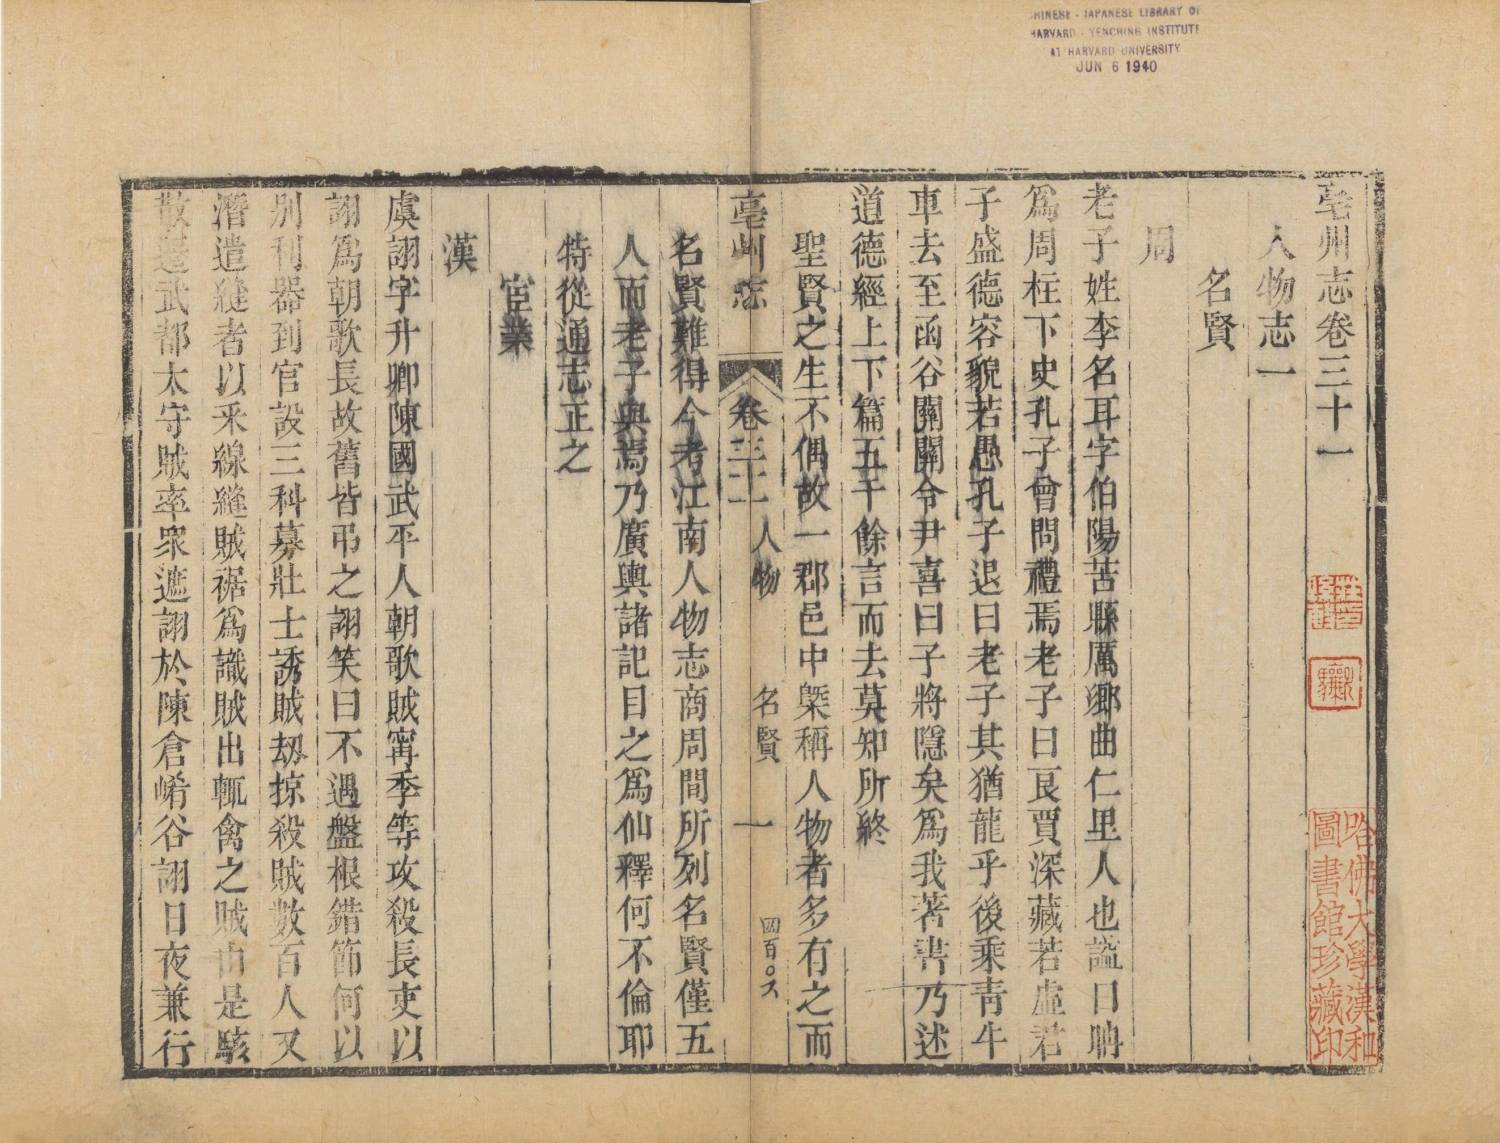 CHINESE - JAPANESE LIBRARY OF
HARVARD - YENCHING INSTITUTE
AT HARVARD UNIVERSITY
JUN 6 1940
亳州志卷三十一
人物志一
名賢
周
老子姓李名耳字伯陽苦縣厲鄉曲仁里人也謚曰聃
爲周柱下史孔子曾問禮焉老子曰良賈深藏若虛君
子盛德容貌若愚孔子退曰老子其猶龍乎後乘青牛
車去至函谷關關令尹喜曰子將隱矣爲我著書乃述
道德經上下篇五千餘言而去莫知所終
聖賢之生不偶故一郡邑中槩稱人物者多有之而
亳州志
卷三十一
人物
名賢
一
四百〇八
名賢難得今考江南人物志商周間所列名賢僅五
人而老子與焉乃廣輿諸記目之爲仙釋何不倫耶
特從通志正之
宦業
漢
虞詡字升卿陳國武平人朝歌賊甯季等攻殺長吏以
詡爲朝歌長故舊皆弔之詡笑曰不遇盤根錯節何以
別利器到官設三科募壯士誘賊劫掠殺賊數百人又
潛遣縫者以采線縫賊裾爲識賊出輒禽之賊由是駭
散遷武都太守賊率眾遮詡於陳倉崤谷詡日夜兼行
哈佛大學漢和
圖書館珍藏印